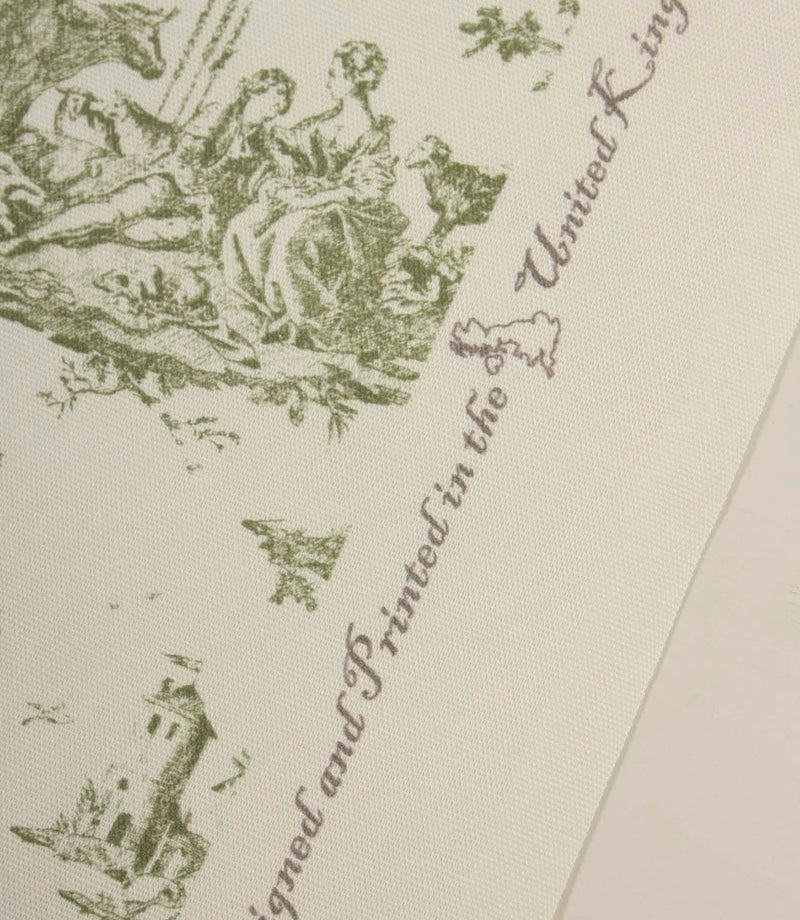 igned and Printed in the United King